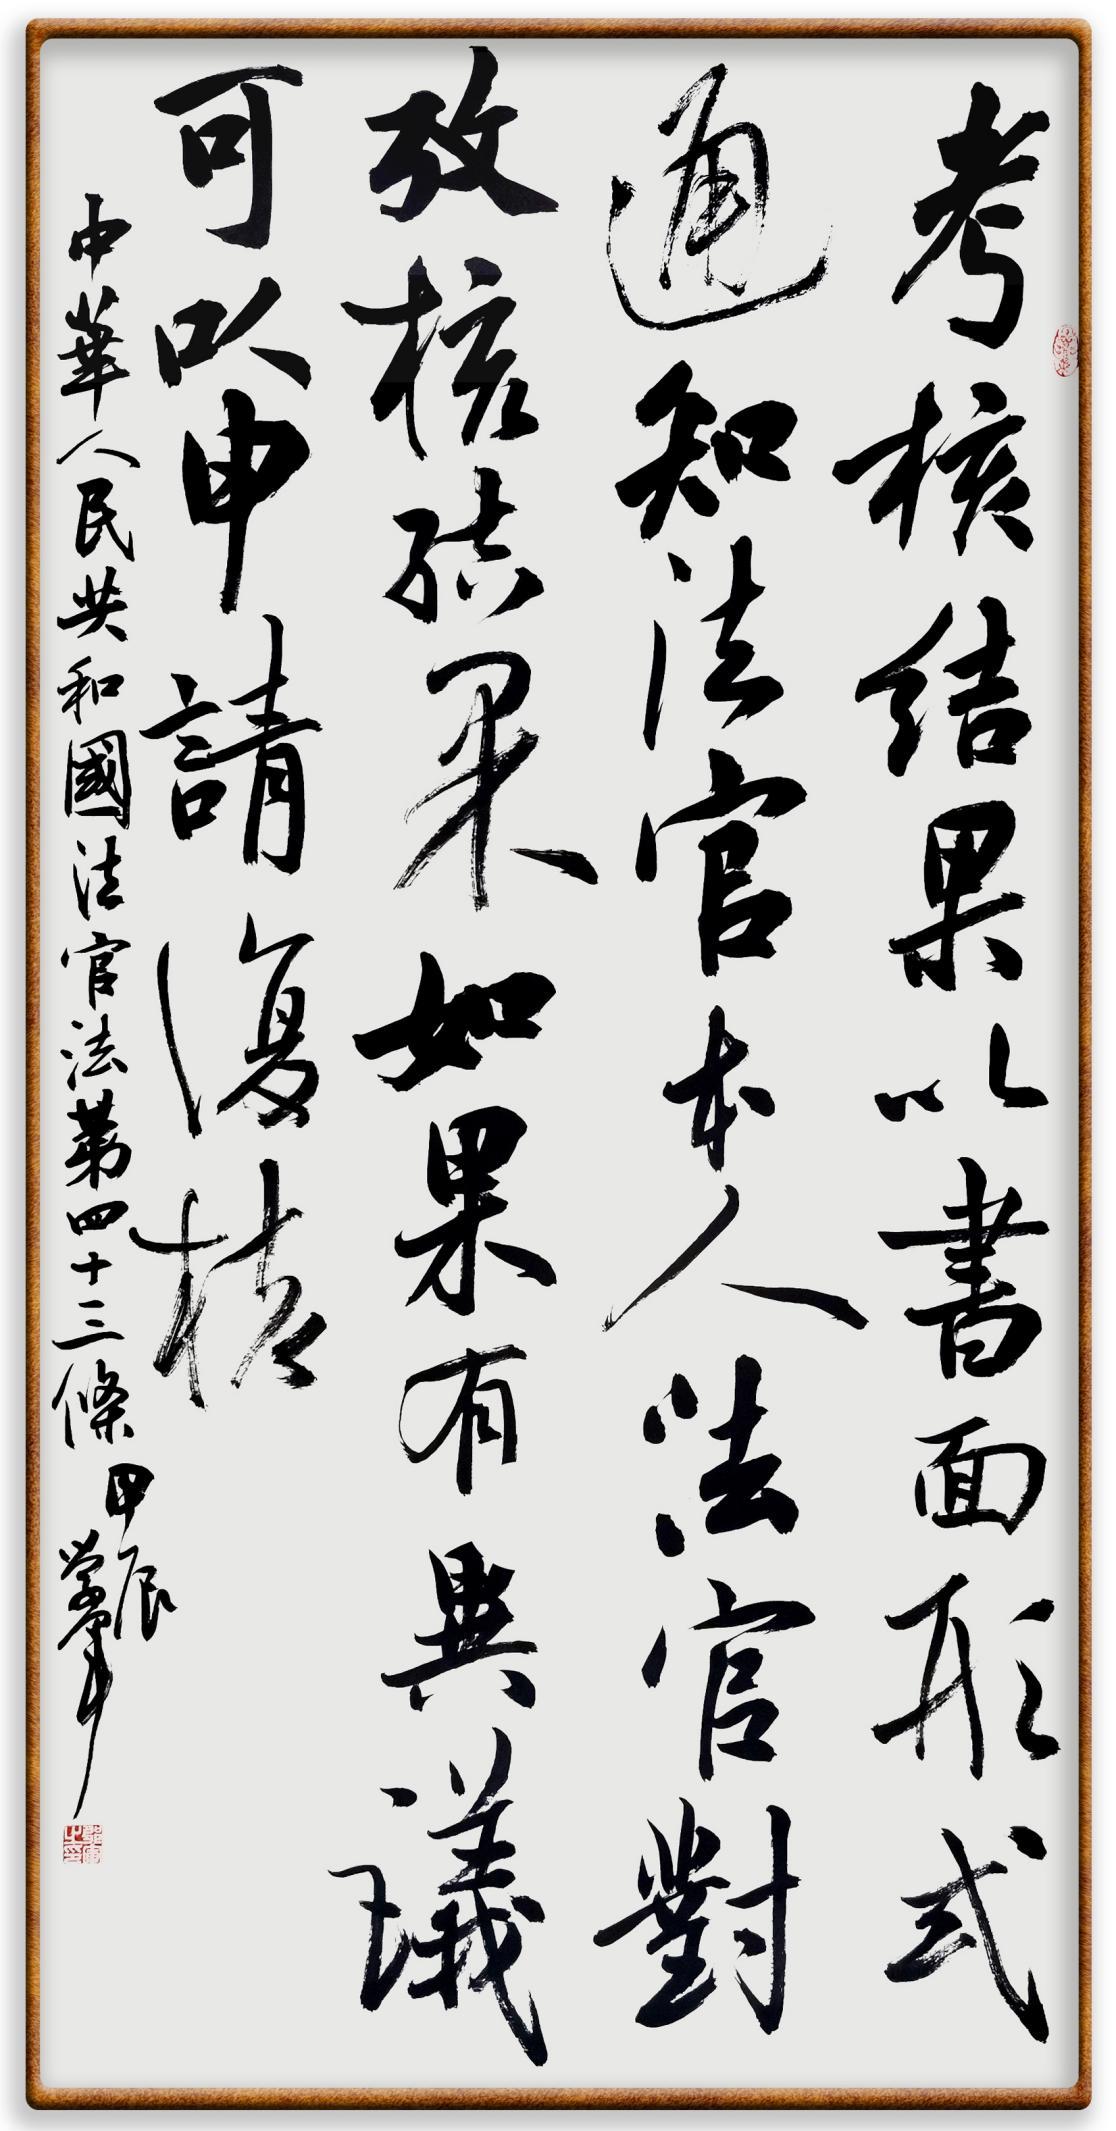 考核结果以書面形式
通知法官本人法官對
攷核结果如果有異議
可以申請復核
中華人民共和國法官法第四十三條
甲辰